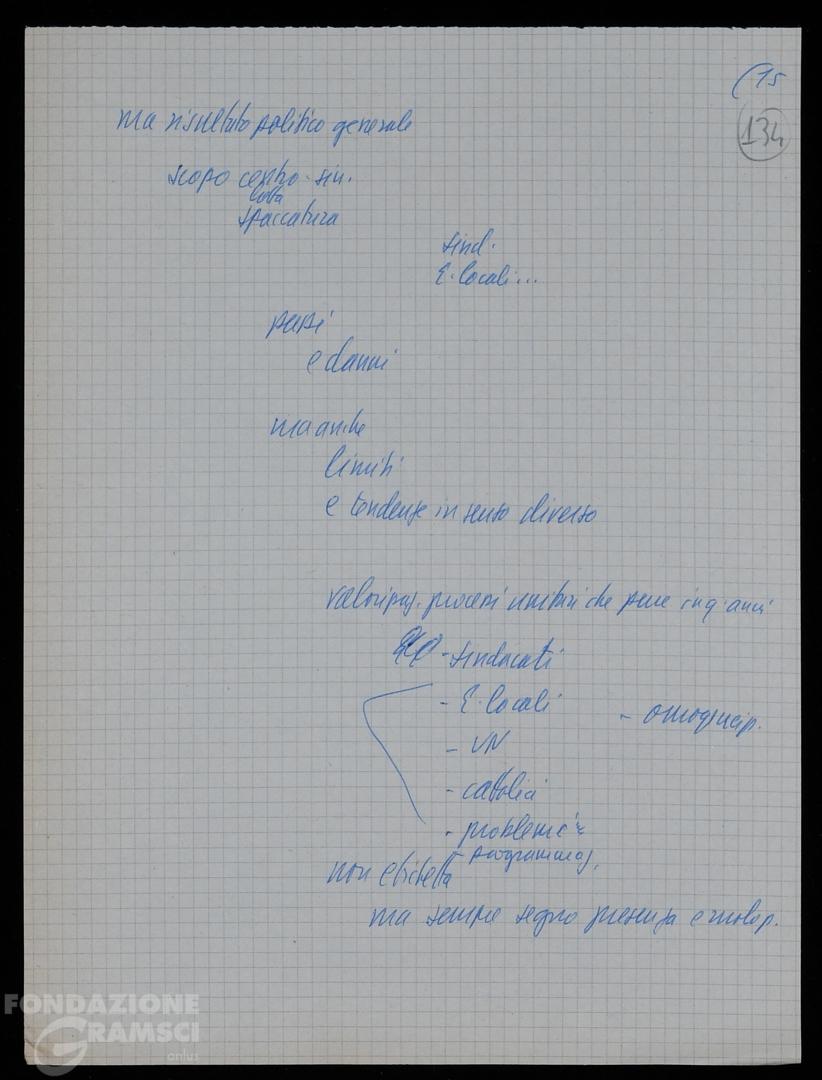 (15
134
ma risultato politico generale
scopo centro-sin.
lotta
spaccatura
sind.
E. locali...
passi
e danni
ma anche
limiti
e tendenze in senso diverso
valorizzaz. processi unitari che pure in q. anni
- sindacati
- E. locali
- omogeneizz.
- VN
- cattolici
- problemi
- programmaz.
non etichetta
ma sempre segno presenza e ruolo p.
FONDAZIONE
GRAMSCI
onlus